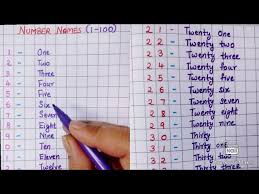 NUMBER NAMES (1-100)
1 - One
2 - Two
3 - Three
4 - Four
5 - Five
6 - Six
7 - Seven
8 - Eight
9 - Nine
0 - Ten
1 - Eleven
2 - Twelve
21 - Twenty one
22 - Twenty two
23 - Twenty three
24 - Twenty four
25 - Twenty five
26 - Twenty six
27 - Twenty seven
28 - Twenty eight
29 - Twenty nine
30 - Thirty
31 - Thirty one
32 - Thirty two